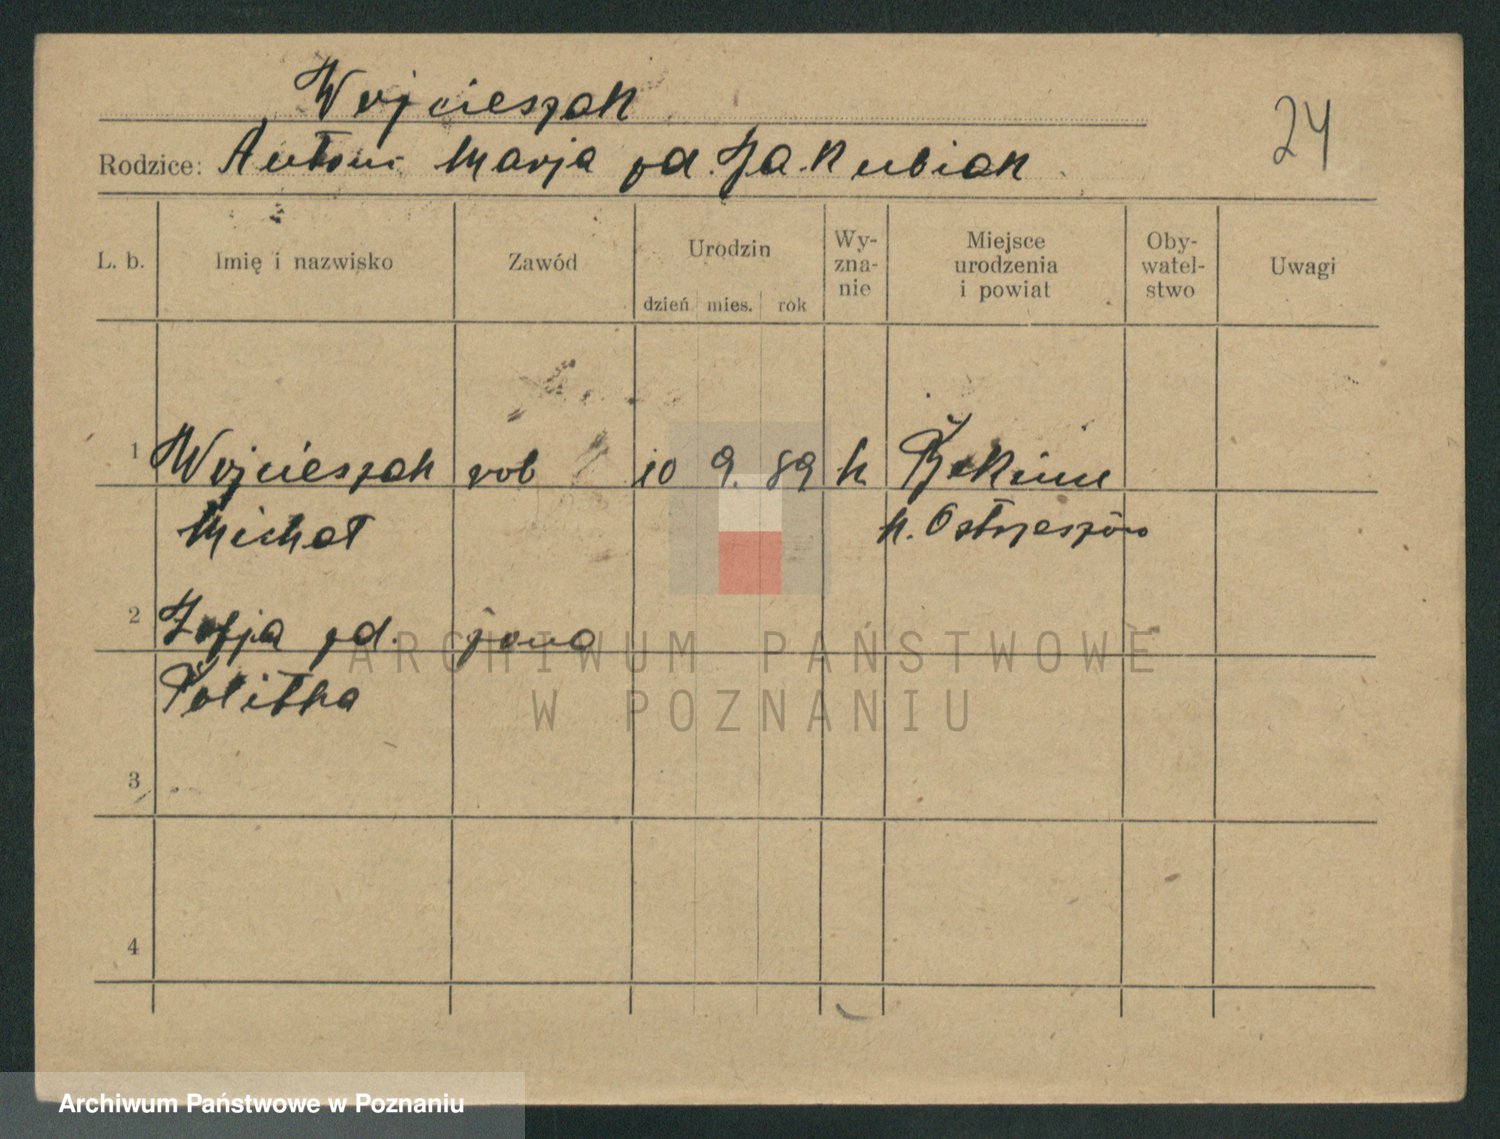 Wojcieszak
24
Rodzice: Antoni Marja zd. Jakubiak
L. b. Imię i nazwisko Zawód Urodzin Wy-zna-nie Miejsce urodzenia i powiat Oby-watel-stwo Uwagi
dzień mies. rok
1 Wojcieszak rob 10 9. 89 k.
Michał p. Ostrzeszów
2 Zofja zd. żona
3
4
ARCHIWUM PAŃSTWOWE
W POZNANIU
Archiwum Państwowe w Poznaniu